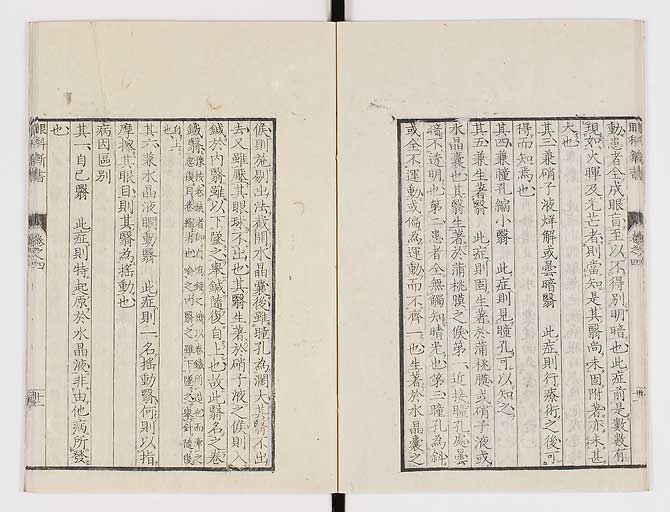 動患者全成眼盲至以不得別明暗也此症前是數數有
現如火暉及光芒者則當知是其翳尚未固附著亦未甚
大也
其三兼硝子液烊解或曇暗翳 此症則行療術之後可
得而知焉也
其四兼瞳孔縮小翳 此症則見瞳孔可以知之
其五兼生著翳 此症則固生著於蒲桃膜或硝子液或
水晶囊也其翳生著於蒲桃膜之候第一近接瞳孔處曇
暗不透明也第二患者全無觸知暗光也第三瞳孔為斜
或全不運動或偏為運動而不齊一也生著於水晶囊之
眼科新書
卷之四
候則施剔出法截開水晶囊後雖瞳孔為濶大其翳不出
去又雖壓其眼球不出也其翳生著於硝子液之候則入
鍼於內翳以下墜之舉鍼隨復自上也故此翳名之卷
鍼翳
自上
也
其六兼水晶液瞤動翳 此症則一名搖動翳何則以指
摩擦其眼目則其翳為搖動也
病因區別
其一自己翳 此症則特起原於水晶液非由他病所發
也
眼科新書
卷之四